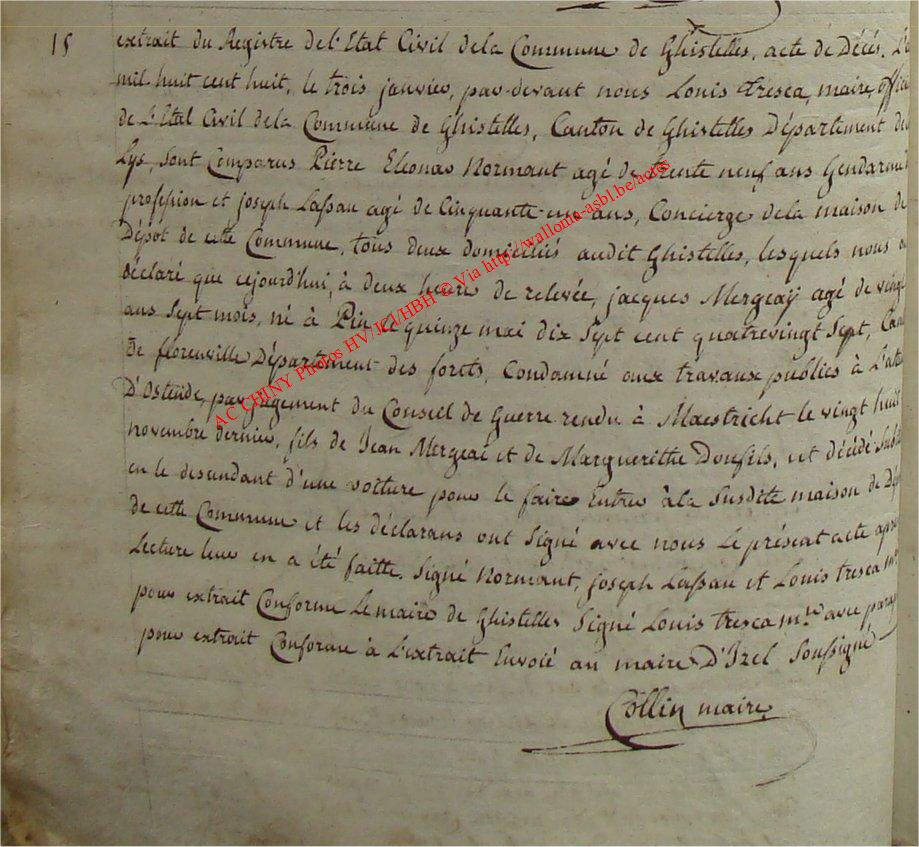 15 extrait du Registre de l'Etat Civil de la Commune de Ghistelles, acte de Décés. L'
mil huit cent huit, le trois janvier, par-devant nous Louis Tresca, maire offic
de L'Etat Civil de la Commune de Ghistelles, Canton de Ghistelles Département de
Lys, sont Comparus Pierre Normant agé de trente neuf ans Gendarm
profession et joseph Lassau agé de Cinquante-un ans, Concierge de la maison de
Dépot de cette Commune, tous deux domiciliés audit Ghistelles, lesquels nous o
déclaré que cejourd'hui, à deux heure de relevée, jacques Mergeaÿ agé de vingt
ans Sept mois, né à Pin le quinze mai dix Sept cent quatrevingt Sept, Can
de florenville Département des forets, Condamné aux travaux publics à L'ate
D'Ostende, par jugement du Conseil de Guerre rendu à Maestricht le vingt huit
novembre dernier, fils de Jean Mergeai et de Margueritte Doufils, est décédé Subi
en le descendant d'une voiture pour le faire Entrer à la Susdite maison de Dép
de cette Commune et les déclarans ont Signé avec nous Le présent acte apre
Lecture leur en a été faitte. Signé Normant, joseph Lassau et Louis tresca m.
pour extrait Conforme Le maire de Ghistelles Signé Louis tresca m.re avec parap
pour extrait Conforme à L'extrait Envoié au maire D'Izel Soussigné
Collin maire
AC CHINY Photos HV/JCJ/HBH © Via http://wallonia-asbl.be/actes